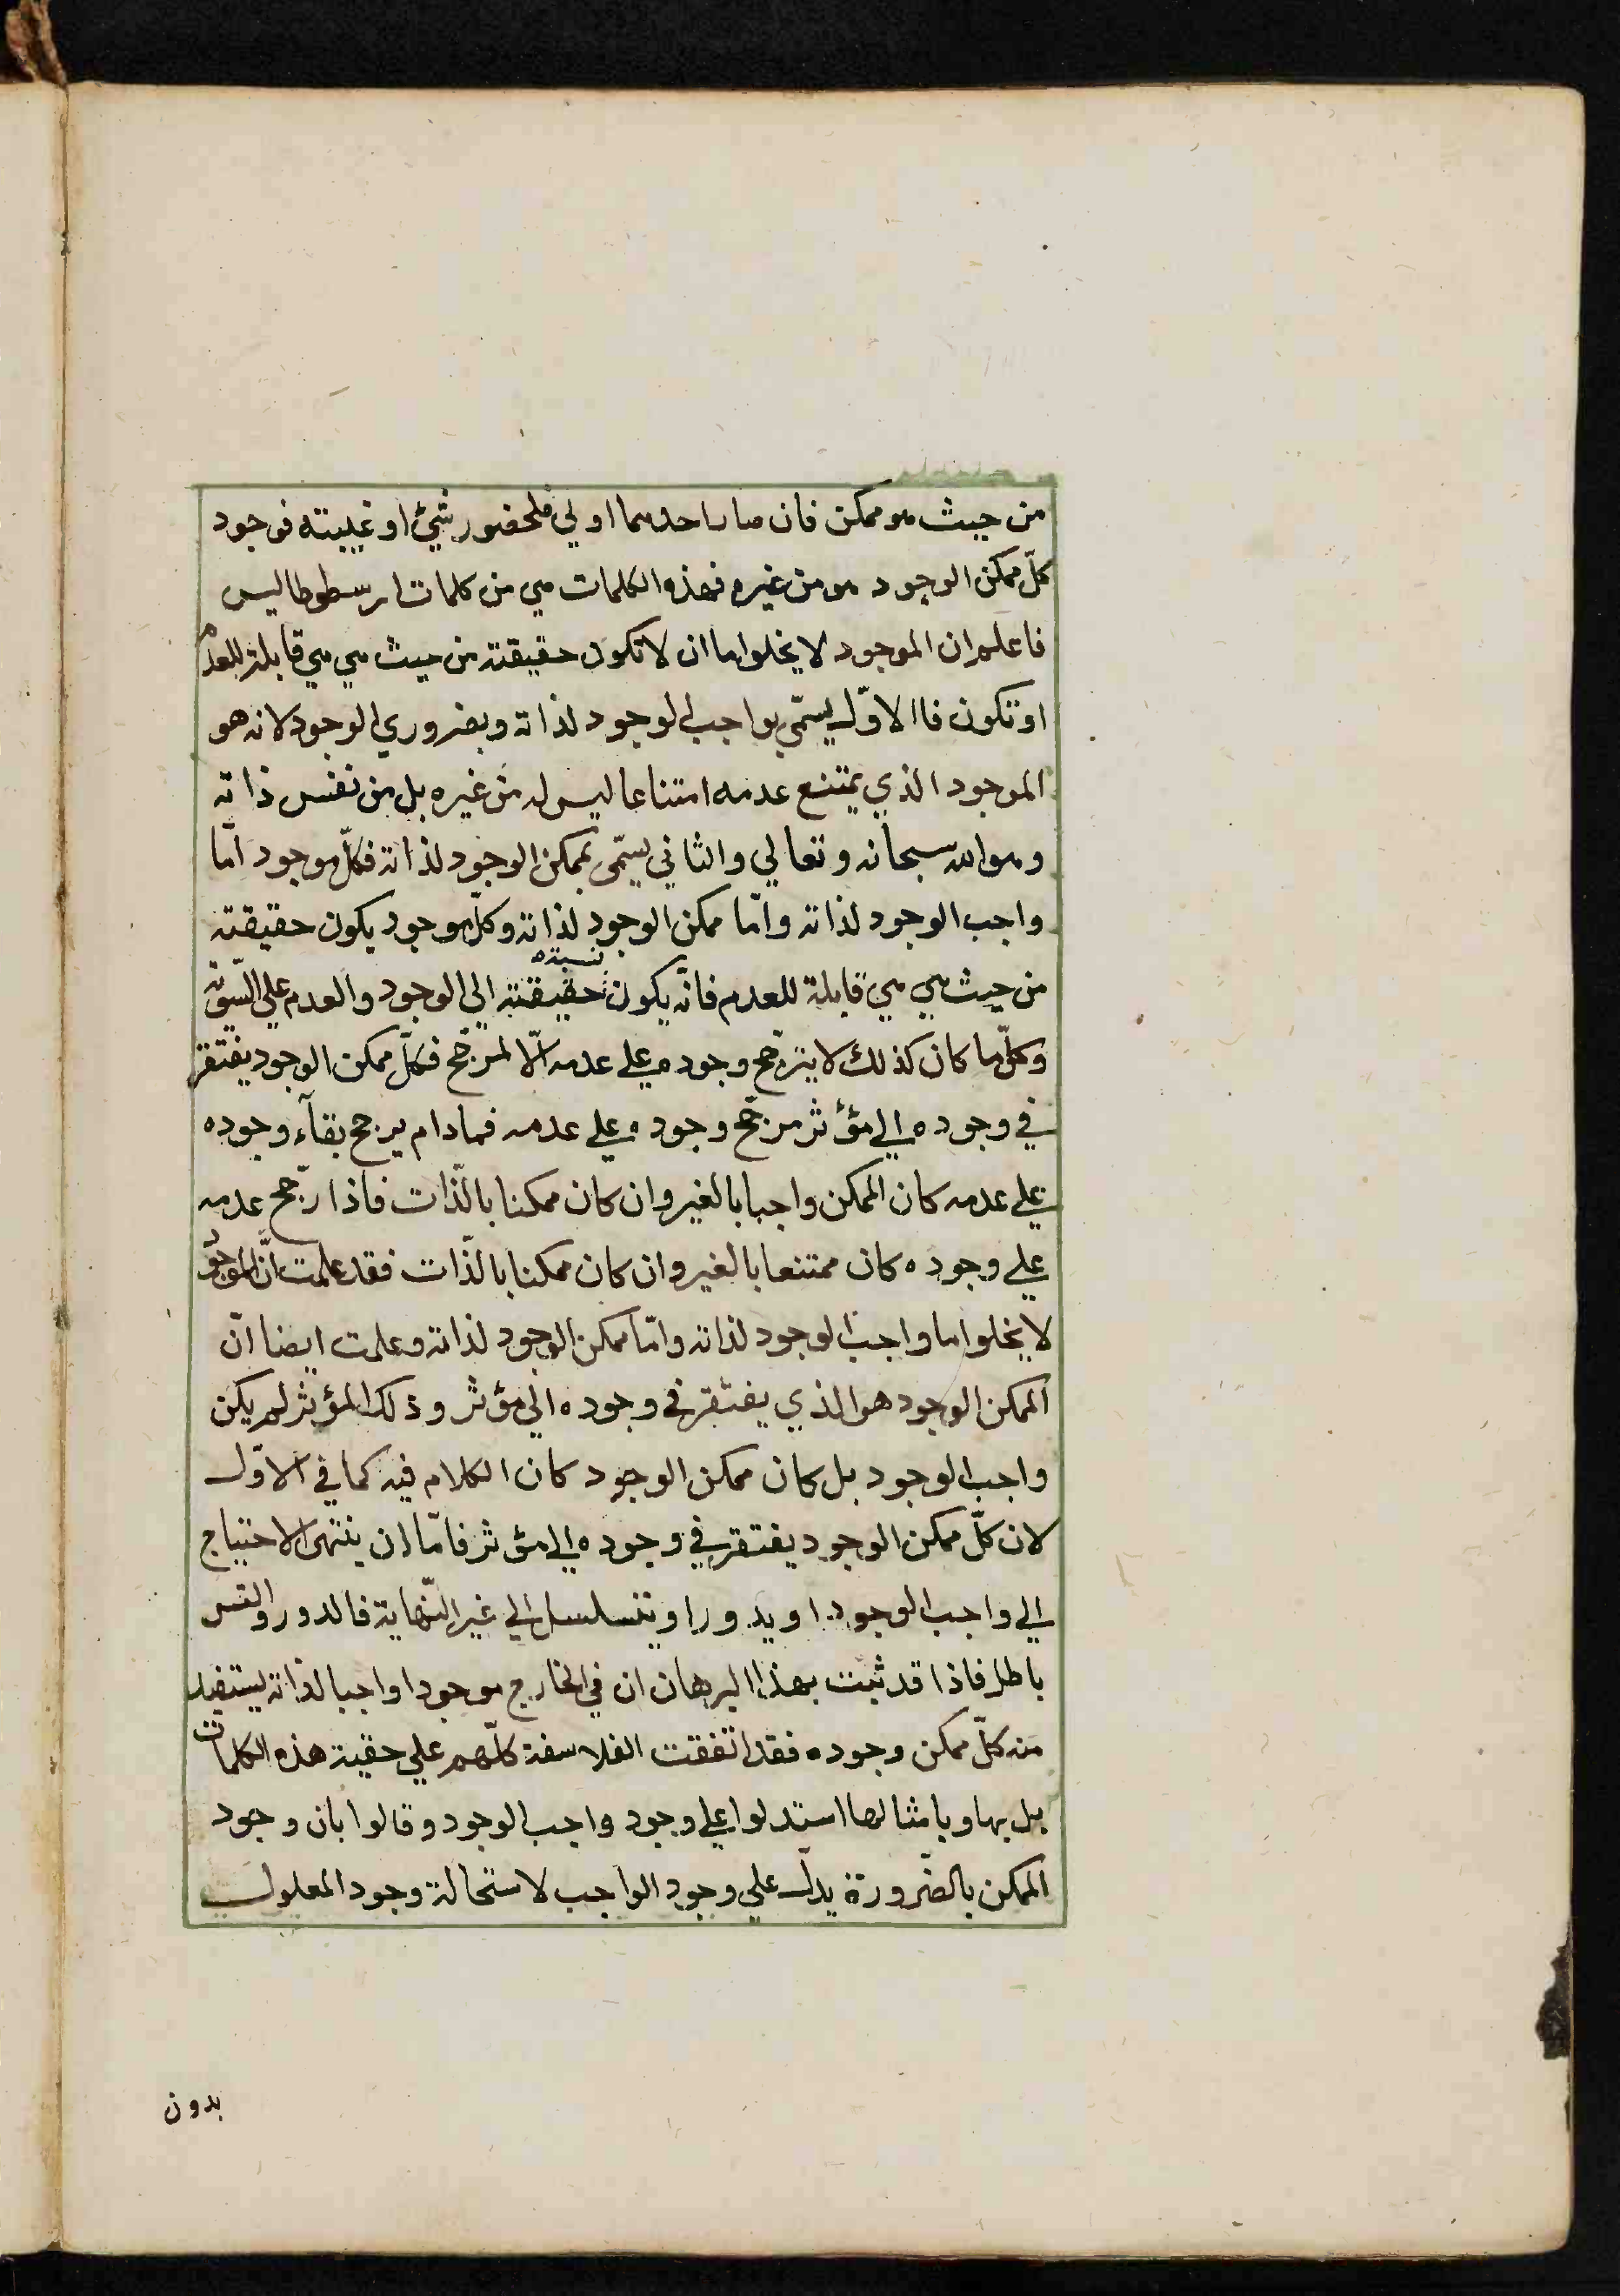 من حيث هو ممكن فان صار احدهما اولي فلحضور شيئ او غيبته فوجود
كلّ ممكن الوجود هو من غيره فهذه الكلمات هي من كلمات ارسطوطاليس
فاعلم ان الموجود لا يخلوا اما ان لا تكون حقيقته من حيث هي هي قابلة للعدم
او تكون فاالاوّل يسمّي بواجب الوجود لذاته وبضروري الوجود لانه هو
الموجود الذي يمتنع عدمه امتناعا ليس له من غيره بل من نفس ذاته
وهو الله سبحانه وتعالي والثاني يسمّى بممكن الوجود لذاته فكلّ موجود امّا
واجب الوجود لذاته وامّا ممكن الوجود لذاته وكلّ موجود يكون حقيقته
من حيث هي هي قابلة للعدم فانّه يكون نسبة حقيقته الي الوجود والعدم علي السّويّة
وكلّ ما كان كذلك لا يترجّح وجوده علي عدمه الّا لمرجّح فكلّ ممكن الوجود يفتقر
في وجوده الي مؤثر مرجّح وجوده علي عدمه فمادام يرجح بقآء وجوده
علي عدمه كان الممكن واجبا بالغير وان كان ممكنا بالذّات فاذا رجّح عدمه
علي وجوده كان ممتنعا بالغير وان كان ممكنا بالذّات فقد علمت انّ الموجود
لا يخلوا اما واجب الوجود لذاته وامّا ممكن الوجود لذاته وعلمت ايضا انّ
الممكن الوجود هو الذي يفتقر في وجوده الي مؤثر وذلك المؤثر لم يكن
واجب الوجود بل كان ممكن الوجود كان الكلام فيه كما في الاوّل
لان كلّ ممكن الوجود يفتقر في وجوده الي مؤثر فامّا ان ينتهى الاحتياج
الي واجب الوجود او يدور او يتسلسل الي غير النّهاية فالدور والتس
باطل فاذا قد ثبت بهذا البرهان ان في الخارج موجودا واجبا لذاته يستفيد
منه كلّ ممكن وجوده فقد اتفقت الفلاسفة كلّهم علي حقية هذه الكلمات
بل بها وبامثالها استدلوا علي وجود واجب الوجود وقالوا بان وجود
الممكن بالضّرورة يدلّ علي وجود الواجب لاستحالة وجود المعلول
بدون